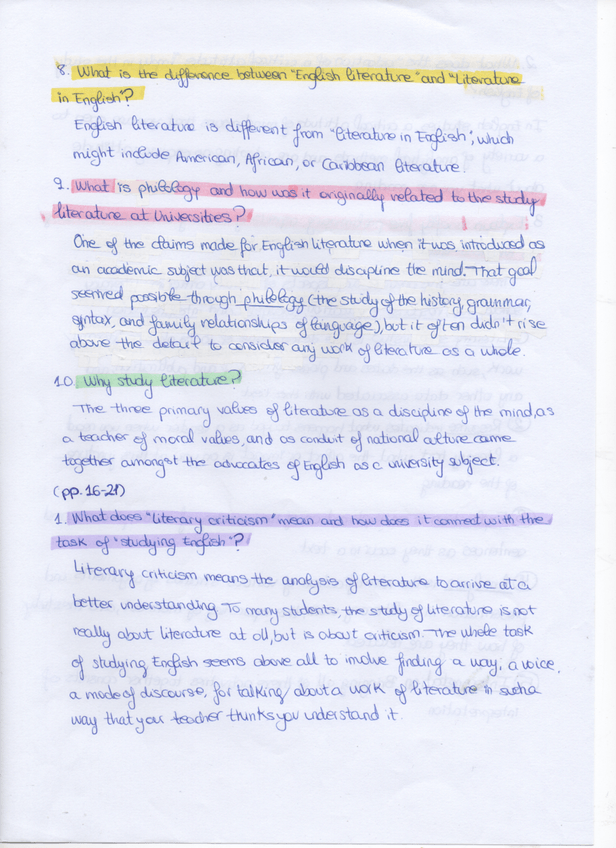 8. What is the difference between "English literature" and "Literature
in English"?
English literature is different from "literature in English", which
might include American, African, or Caribbean literature.
9. What is philology and how was it originally related to the study
literature at Universities?
One of the claims made for English literature when it was introduced as
an academic subject was that, it would discipline the mind. That goal
seemed possible through philology (the study of the history, grammar,
syntax, and family relationships of language), but it often didn't rise
above the detail to consider any work of literature as a whole.
10. Why study literature?
The three primary values of literature as a discipline of the mind, as
a teacher of moral values, and as conduit of national culture came
together amongst the advocates of English as a university subject.
(pp. 16-21)
1. What does "literary criticism" mean and how does it connect with the
task of "studying English"?
Literary criticism means the analysis of literature to arrive at a
better understanding. To many students, the study of literature is not
really about literature at all, but is about criticism. The whole task
of studying English seems above all to involve finding a way, a voice,
a mode of discourse, for talking about a work of literature in such a
way that your teacher thinks you understand it.